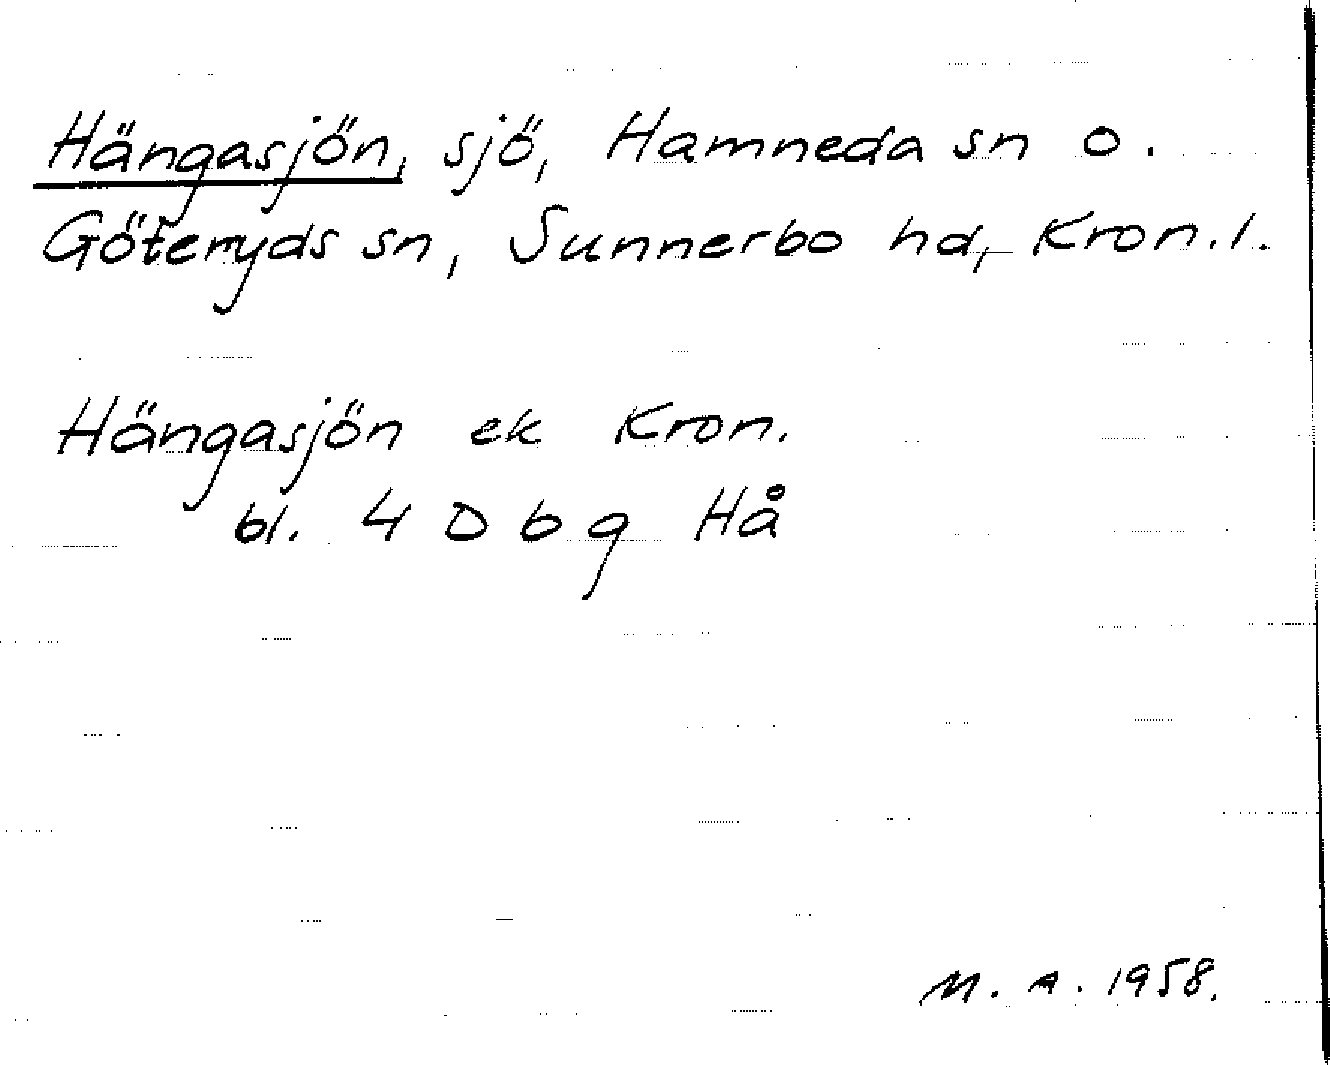 Hängasjön, sjö, Hamneda sn o.
Göteryds sn, Sunnerbo hd, Kron. l.
Hängasjön ek Kron.
bl. 4 D b g Hå
M. A. 1958.